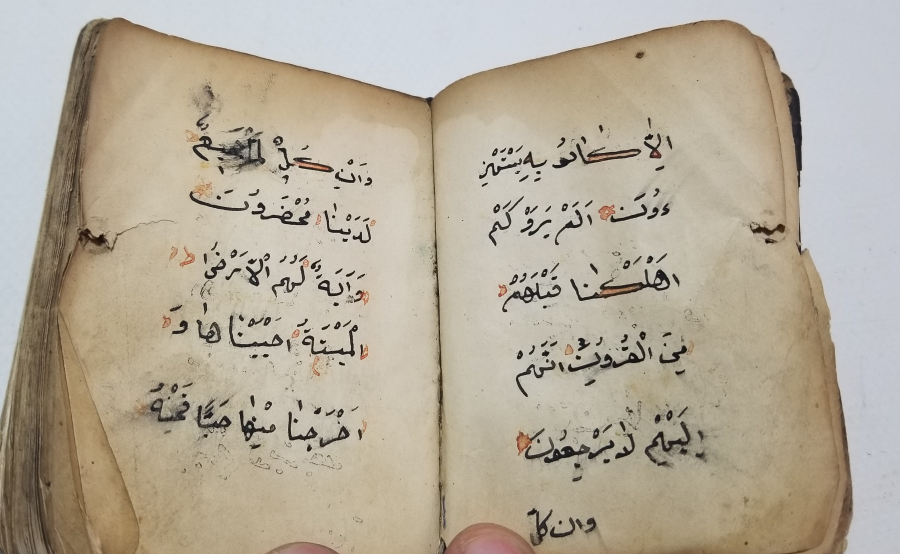 اِلَّا كَانُو بِهِ يَسْتَهْزِ
ءُونَ اَلَمْ يَرَوْ كَمْ
اَهْلَكْنَا قَبْلَهُمْ
مِنَ الْقُرُونِ اَنَّهُمْ
اِلَيْهِمْ لَا يَرْجِعُونَ
وان كلّ
وَاِنْ كُلٌّ
لَدَيْنَا مُحْضَرُونَ
وَآيَةٌ لَهُمُ الْاَرْضُ
الْمَيْتَةُ اَحْيَيْنَاهَا وَ
اَخْرَجْنَا مِنْهَا حَبًّا فَمِنْهُ